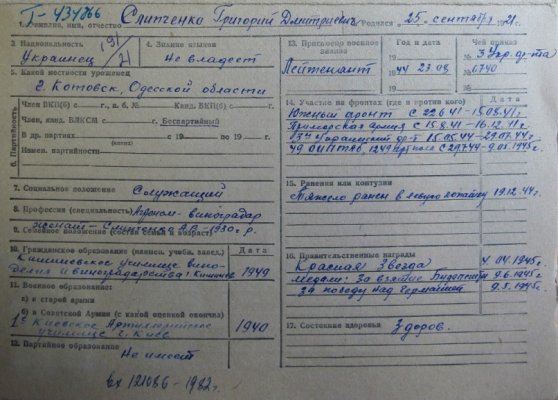 Г-434066
1. Фамилия, имя, отчество Слипченко Григорий Дмитриевич Родился 25 сентября 1921
3. Национальность
Украинец
191/21
4. Знание языков
не владеет
5. Какой местности уроженец
г. Котовск, Одесской области
6. Партийность
Член ВКП(б) с г., п. б. № Канд. ВКП(б) с г.
Член, канд. ВЛКСМ с Беспартийный
В др. партиях с 19 по 19 г.
Измен. партийности
7. Социальное положение Служащий
8. Профессия (специальность) Агроном-виноградар
9. Семейное положение (состав семьи и возраст)
женат - 1930 г.р.
10. Гражданское образование Дата
Кишиневское училище вино-
делия и виноградарства г. Кишинев 1949
11. Военное образование:
а) в старой армии
б) в Советской Армии (с какой оценкой окончил)
1е Киевское Артиллерийское
училище г. Киев 1940
12. Партийное образование
Не имеет
вх 121086 - 1982 г.
13. Присвоено военное звание Год и дата Чей приказ №
Лейтенант 44 23.08 3 Укр. фр-та
0740
14. Участие на фронтах (где и против кого) Дата
Южный фронт с 22.6.41 - 15.08.41 г.
Приморская армия с 15.8.41 - 16.12.41 г.
3й Украинский фр-т 15.05.44 - 29.07.44 г.
49 ОИПТАБ, 1249 Арт полк с 29.7.44 - 9.05.1945 г.
15. Ранения или контузии Дата
Тяжело ранен в левую лопатку 19.12.44 г.
16. Правительственные награды Дата
Красная Звезда 4.04.1945 г.
Медали: За взятие Будапешта 9.6.1945 г.
За победу над Германией 9.5.1945 г.
17. Состояние здоровья Здоров.